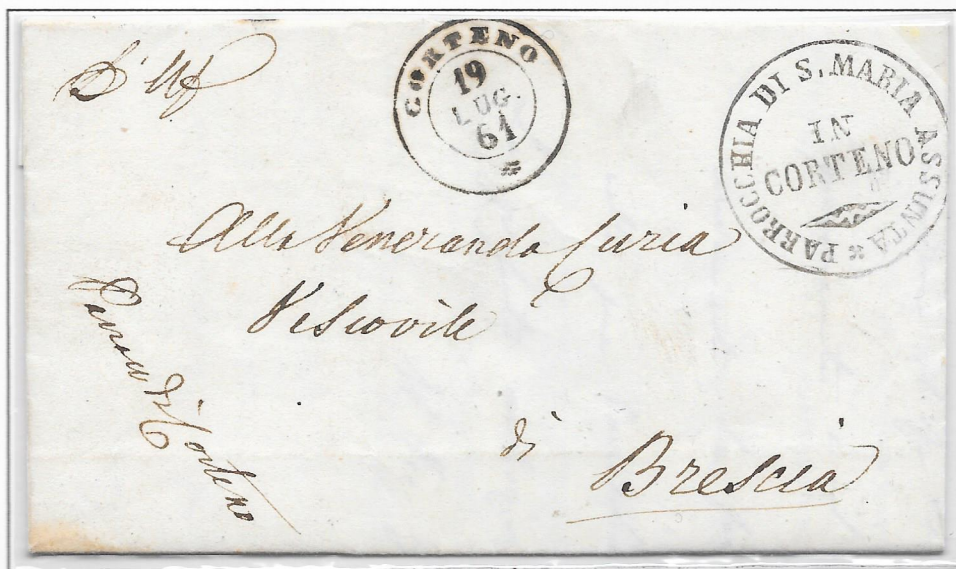 D'Uff
CORTENO
19
LUG.
61
PARROCCHIA DI S. MARIA ASSUNTA
IN
CORTENO
Alla Veneranda Curia
Vescovile
di
Brescia
di Corteno